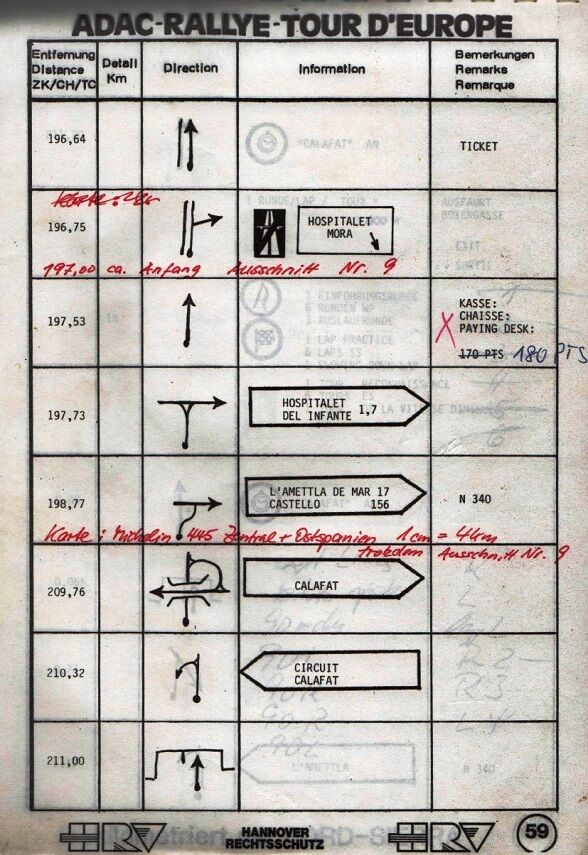 ADAC-RALLYE-TOUR D'EUROPE
Entfernung Distance ZK/CH/TC
Detail Km
Direction
Information
Bemerkungen Remarks Remarque
196,64
"CALAFAT" AN
TICKET
1 RUNDE/LAP / TOUR
AUSFAHRT
BOXENGASSE
EXIT
SORTIE
196,75
HOSPITALET
MORA
197,00 ca. Anfang Ausschnitt Nr. 9
1 EINFÜHRUNGSRUNDE
6 RUNDEN WP
1 AUSLAUFRUNDE
1 LAP PRACTICE
6 LAPS SS
197,53
KASSE:
CHAISSE:
PAYING DESK:
X
170 PTS 180 PTS
197,73
HOSPITALET
DEL INFANTE 1,7
198,77
L'AMETTLA DE MAR 17
CASTELLO 156
N 340
Karte: Michelin 445 Zentral + Ostspanien 1cm = 4km
trotzdem Ausschnitt Nr. 9
209,76
CALAFAT
210,32
CIRCUIT
CALAFAT
211,00
L'AMETTLA
N 340
HRV
HANNOVER
RECHTSSCHUTZ
HRV
59